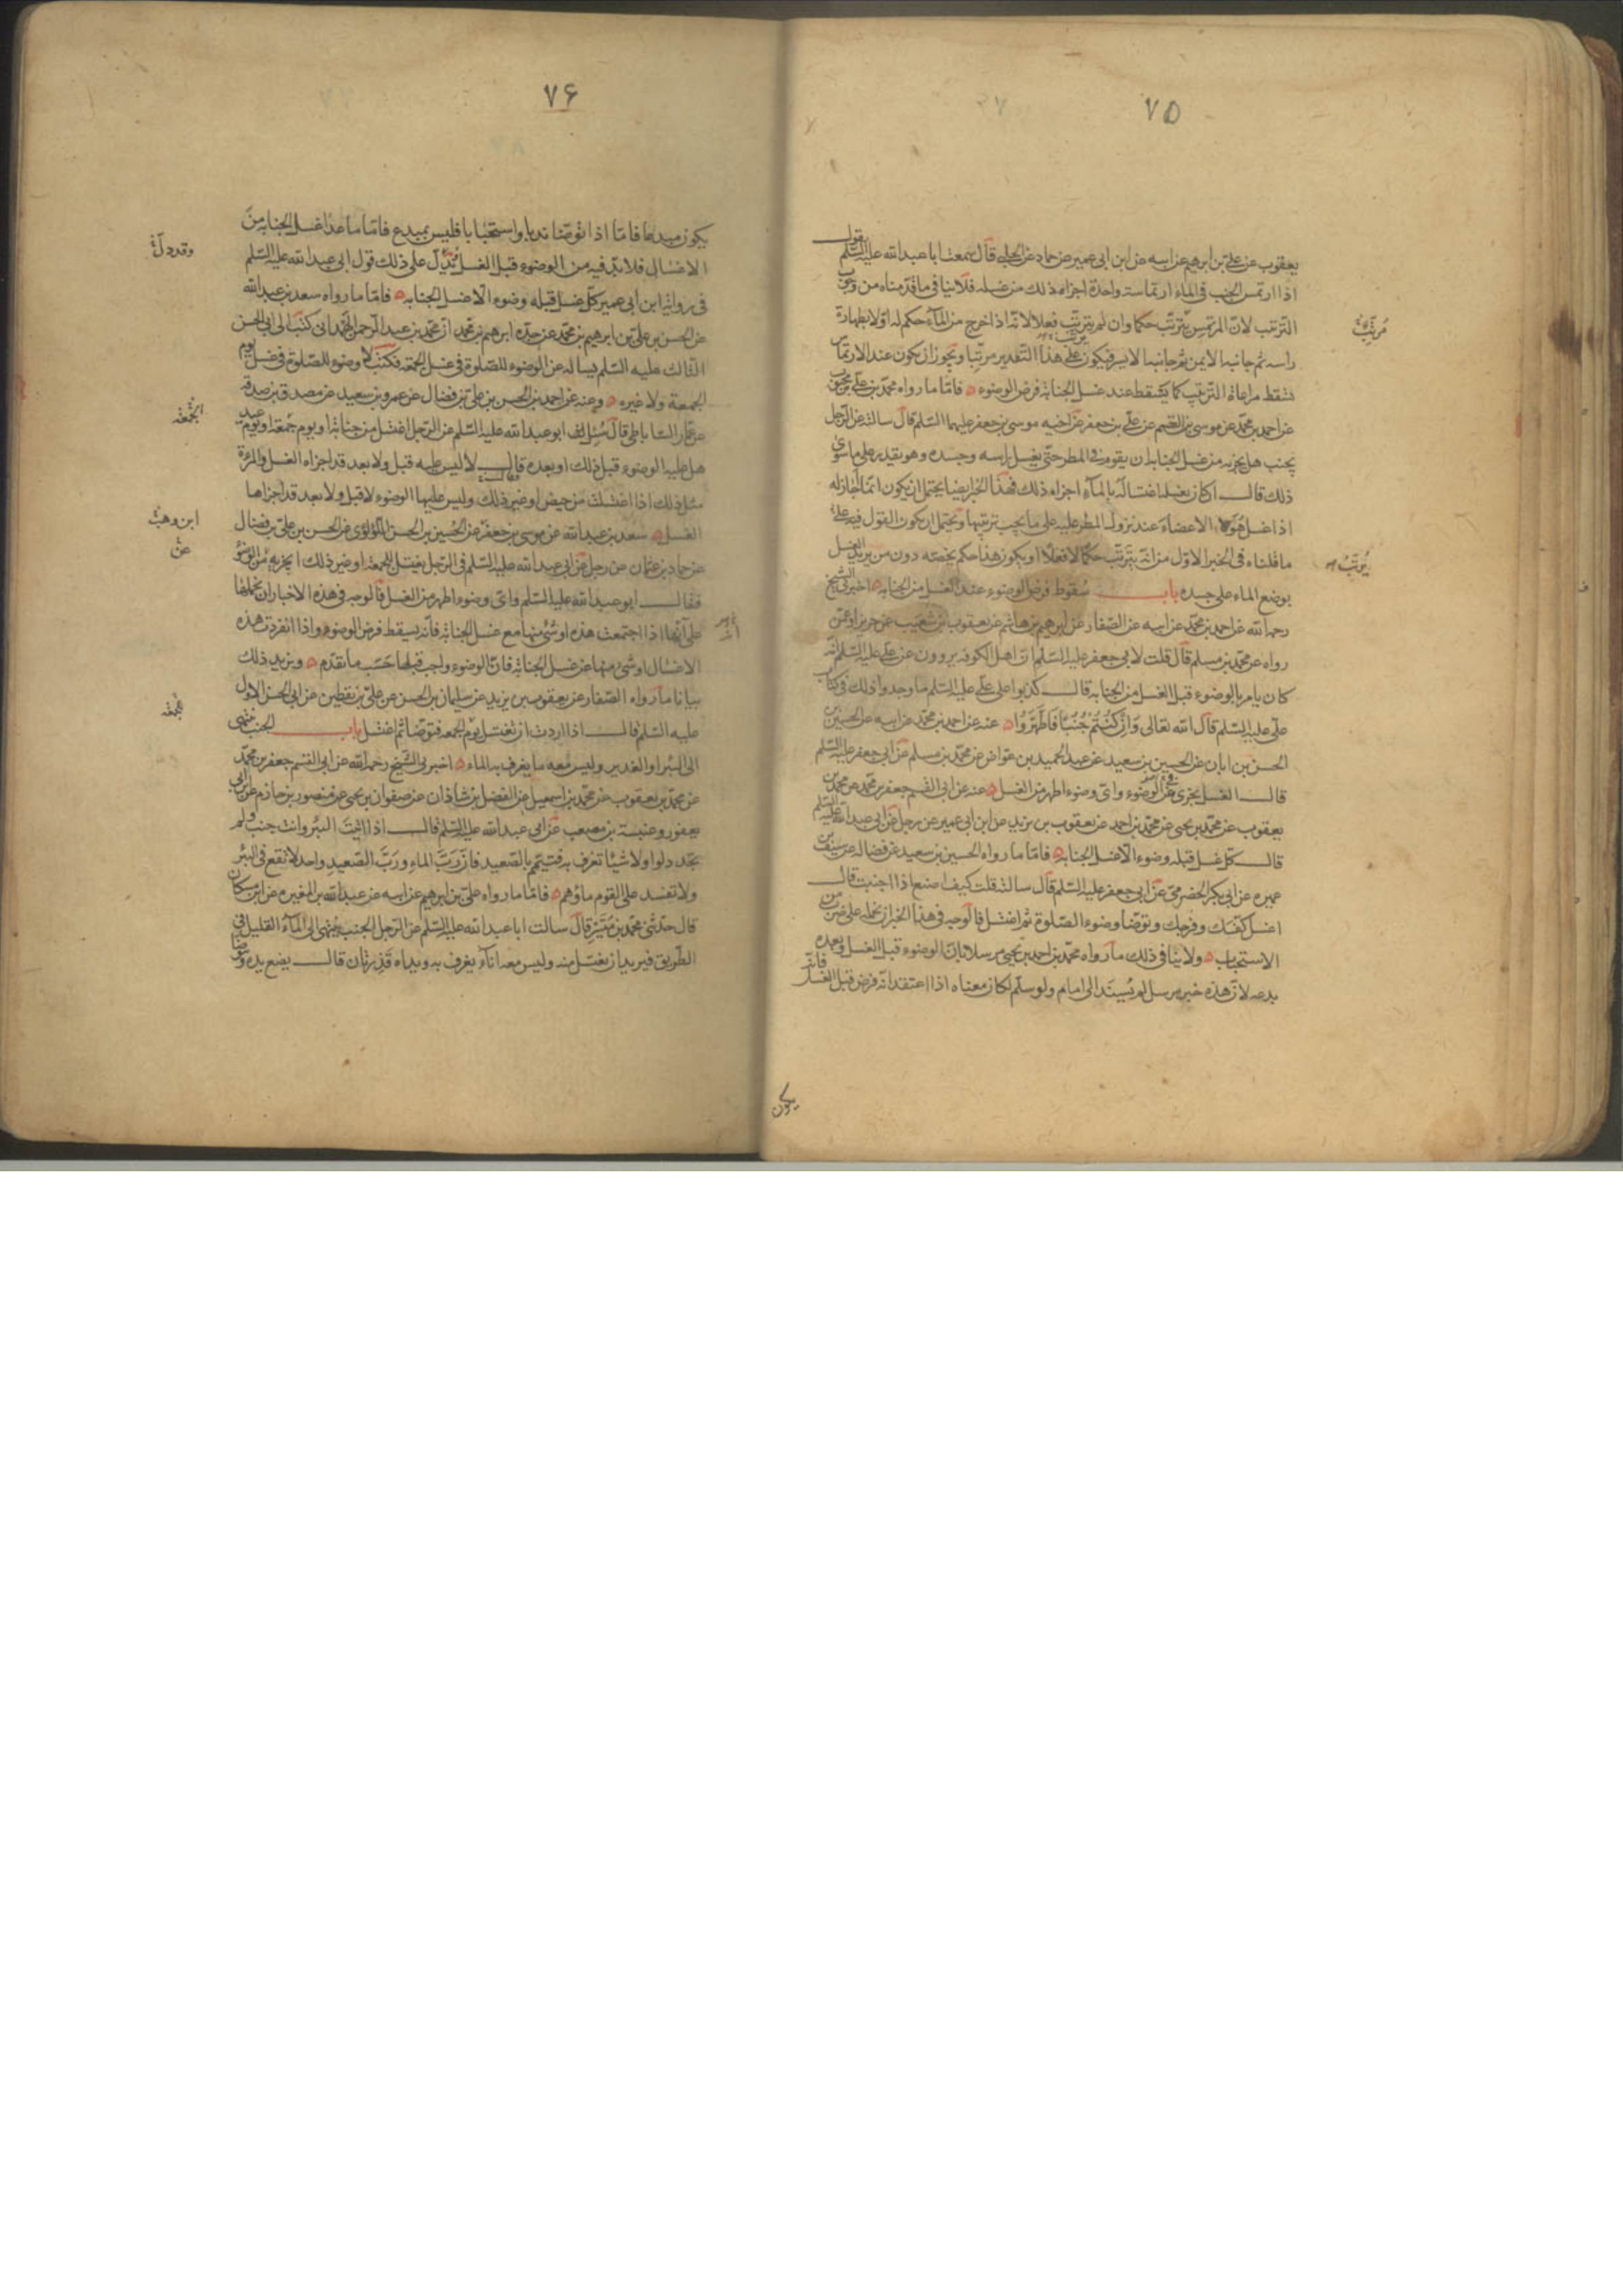 ٧۵
يعقوب عن علي بن ابرهيم عن ابيه عن ابن ابي عمير عن حماد عن الحلبي قال سمعت ابا عبد الله عليه السلم يقول
اذا ارتمس الجنب في الماء ارتماسة واحدة اجزاه ذلك من غسله فلا ينافي ما قدمناه من وجوب
الترتيب لان المرتمس يترتب حكما وان لم يترتب فعلا لانه اذا خرج من الماء حكم له اولا بطهارة
راسه ثم جانبه الايمن ثم جانبه الايسر فيكون على هذا التقدير مرتبا ويجوز ان يكون عند الارتماس
تسقط مراعاة الترتيب كما يسقط عند غسل الجنابة فرض الوضوء فاما ما رواه محمد بن علي بن محبوب
عن احمد بن محمد عن موسى بن القسم عن علي بن جعفر عن اخيه موسى بن جعفر عليهما السلم قال سالته عن الرجل
يجنب هل يجزيه من غسل الجنابة ان يقوم في المطر حتى يغسل راسه وجسده وهو يقدر على ما سوى
ذلك قال ان كان يغسله اغتساله بالماء اجزاه ذلك فهذا الخبر ايضا يحتمل ان يكون انما اجاز له
اذا غسل هولاء الاعضاء عند نزول المطر عليه على ما يجب ترتيبها ويحتمل ان يكون القول فيه على
ما قلناه في الخبر الاول من انه يترتب حكما لا فعلا او يكون هذا حكم يخصه دون من يريد الغسل
بوضع الماء على جسده باب سقوط فرض الوضوء عند الغسل من الجنابة اخبرني الشيخ
رحمه الله عن احمد بن محمد عن ابيه عن الصفار عن ابرهيم بن هاشم عن يعقوب بن شعيب عن حريز او عمن
رواه عن محمد بن مسلم قال قلت لابي جعفر عليه السلم ان اهل الكوفة يروون عن علي عليه السلم انه
كان يامر بالوضوء قبل الغسل من الجنابة قال كذبوا على علي عليه السلم ما وجدوا ذلك في كتاب
علي عليه السلم قال الله تعالى وَاِنْ كُنْتُمْ جُنُبًا فَاطَّهَّرُوا عنه عن احمد بن محمد عن ابيه عن الحسين بن
الحسن بن ابان عن الحسين بن سعيد عن عبد الحميد بن عواض عن محمد بن مسلم عن ابي جعفر عليه السلم
قال الغسل يجزي عن الوضوء واي وضوء اطهر من الغسل عنه عن ابي القسم جعفر بن محمد عن محمد بن
يعقوب عن محمد بن يحيى عن محمد بن احمد عن يعقوب بن يزيد عن ابن ابي عمير عن رجل عن ابي عبد الله عليه السلم
قال كل غسل قبله وضوء الا غسل الجنابة فاما ما رواه الحسين بن سعيد عن فضالة عن سيف بن
عميره عن ابي بكر الحضرمي عن ابي جعفر عليه السلم قال سالته قلت كيف اصنع اذا اجنبت قال
اغسل كفك وفرجك وتوضأ وضوء الصلوة ثم اغتسل فالوجه في هذا الخبر ان نحمله على ضرب من
الاستحباب ولا ينافي ذلك ما رواه محمد بن احمد بن يحيى مرسلا بان الوضوء قبل الغسل وبعده
بدعه لان هذه خبر مرسل لم يسند الى امام ولو سلم لكان معناه اذا اعتقد انه فرض قبل الغسل فانه
يكون
مرتب
يرتب
٧۶
يكون مبدعا فاما اذا توضا ندبا واستحبابا فليس بمبدع فاما ما عدا غسل الجنابة من
الاغسال فلا بد فيه من الوضوء قبل الغسل يدل على ذلك قول ابي عبد الله عليه السلم
في رواية ابن ابي عمير كل غسل قبله وضوء الا غسل الجنابه فاما ما رواه سعد بن عبد الله
عن الحسن بن علي بن ابرهيم بن محمد عن جده ابرهيم بن محمد ان محمد بن عبد الرحمن الهمداني كتب الى ابي الحسن
الثالث عليه السلم يساله عن الوضوء للصلوة في غسل الجمعة فكتب لا وضوء للصلوة في غسل يوم
الجمعة ولا غيره وعنه عن احمد بن الحسن بن علي بن فضال عن عمرو بن سعيد عن مصدق بن صدقه
عن عمار الساباطي قال سئل ابو عبد الله عليه السلم عن الرجل اغتسل من جنابة او يوم جمعة او يوم عيد
هل عليه الوضوء قبل ذلك او بعده فقال لا ليس عليه قبل ولا بعد قد اجزاه الغسل والمرءة
مثل ذلك اذا اغتسلت من حيض او غير ذلك وليس عليها الوضوء لا قبل ولا بعد قد اجزاها
الغسل سعد بن عبد الله عن موسى بن جعفر عن الحسين بن الحسن اللؤلؤي عن الحسن بن علي بن فضال
عن حماد بن عثمان عن رجل عن ابي عبد الله عليه السلم في الرجل يغتسل للجمعة او غير ذلك ايجزيه من الوضوء
فقال ابو عبد الله عليه السلم واي وضوء اطهر من الغسل فالوجه في هذه الاخبار ان نحملها
على انها اذا اجتمعت هذه او شئ منها مع غسل الجنابة فانه يسقط فرض الوضوء واذا انفردت هذه
الاغسال او شئ منها عن غسل الجنابة فان الوضوء واجب قبلها حسب ما تقدم ويزيد ذلك
بيانا ما رواه الصفار عن يعقوب بن يزيد عن سليمان بن الحسن عن علي بن يقطين عن ابي الحسن الاول
عليه السلم قال اذا اردت ان تغتسل يوم الجمعه فتوضا ثم اغتسل باب الجنب ينتهي
الى البئر او الغدير وليس معه ما يغرف به الماء اخبرني الشيخ رحمه الله عن ابي القسم جعفر بن محمد
عن محمد بن يعقوب عن محمد بن اسمعيل عن الفضل بن شاذان عن صفوان بن يحيى عن منصور بن حازم عن ابن ابي
يعفور وعنبسة بن مصعب عن ابي عبد الله عليه السلم قال اذا اتيت البئر وانت جنب ولم
تجد دلوا ولا شيئا تغرف به فتيمم بالصعيد فان رَبَّ الماءِ ورَبَّ الصّعيدِ واحد لا تقع في البئر
ولا تفسد على القوم ماؤهم فاما ما رواه علي بن ابرهيم عن ابيه عن عبد الله بن المغيره عن ابن مسكان
قال حدثني محمد بن مُيَسِّر قال سالت ابا عبد الله عليه السلم عن الرجل الجنب ينتهي الى الماء القليل في
الطريق فيريد ان يغتسل منه وليس معه اناء يغرف به ويداه قذرتان قال يضع يده ويتوضأ
وقد دل
الجمعه
ابن وهب
عن